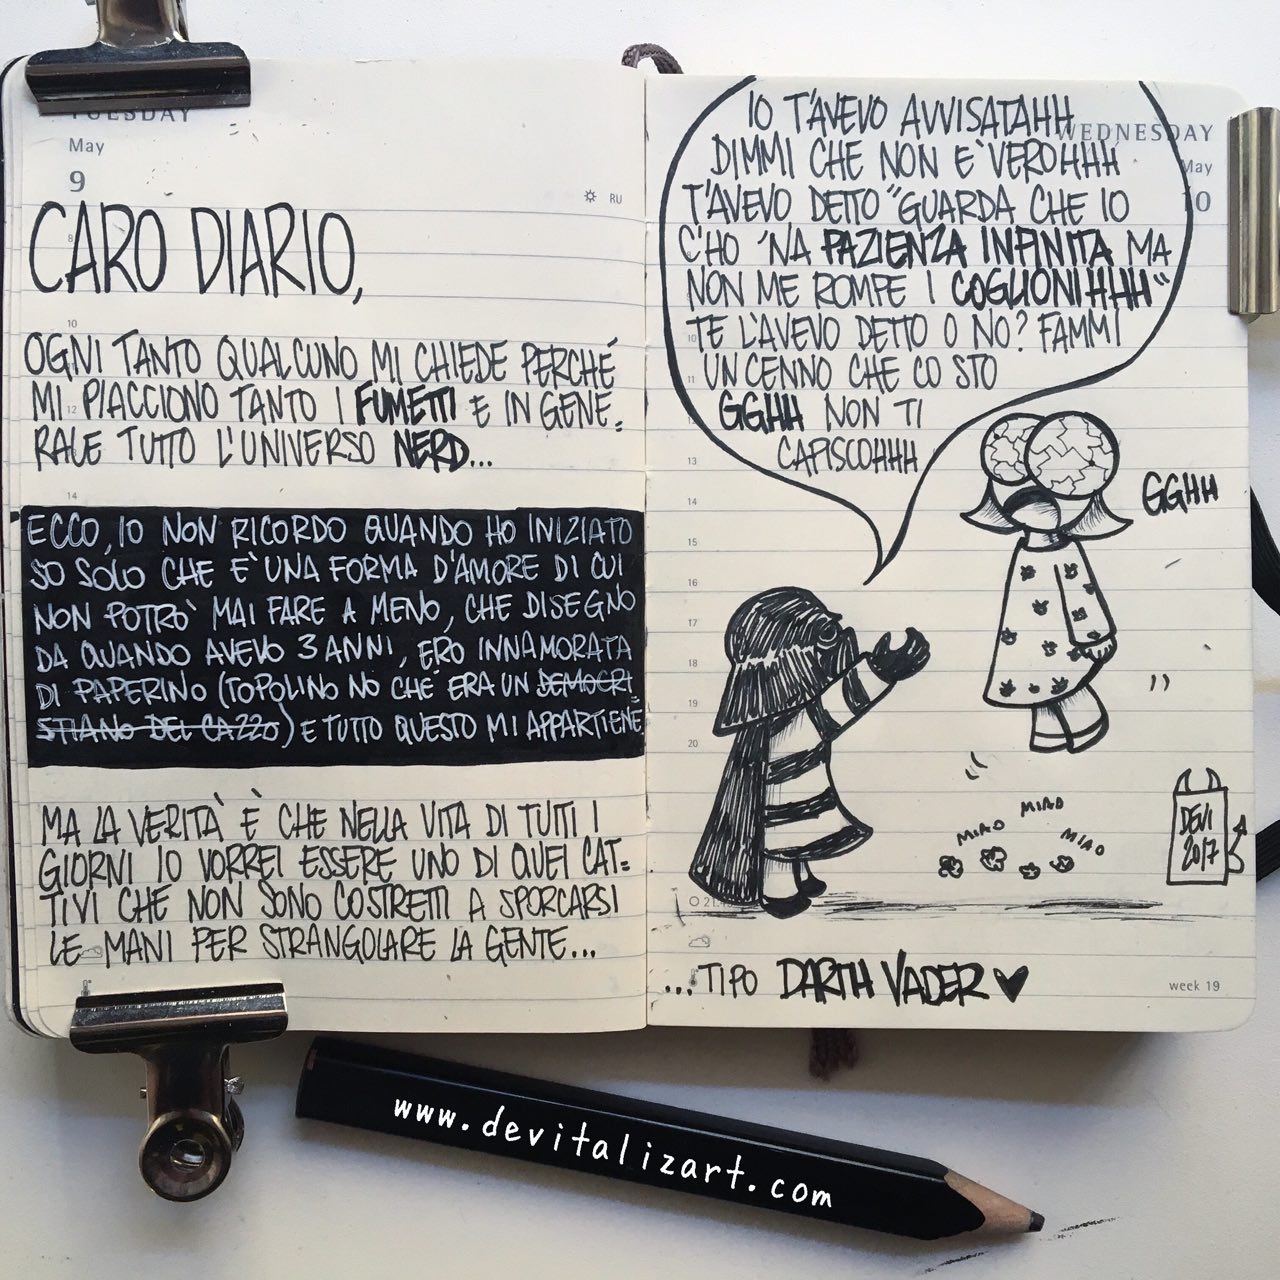 TUESDAY
May
9
RU
CARO DIARIO,
OGNI TANTO QUALCUNO MI CHIEDE PERCHÉ
MI PIACCIONO TANTO I FUMETTI E IN GENE=
RALE TUTTO L'UNIVERSO NERD...
ECCO, IO NON RICORDO QUANDO HO INIZIATO
SO SOLO CHE È UNA FORMA D'AMORE DI CUI
NON POTRÒ MAI FARE A MENO, CHE DISEGNO
DA QUANDO AVEVO 3 ANNI, ERO INNAMORATA
DI PAPERINO (TOPOLINO NO CHE ERA UN DEMOCRI=
STIANO DEL CAZZO) E TUTTO QUESTO MI APPARTIENE
MA LA VERITÀ È CHE NELLA VITA DI TUTTI I
GIORNI IO VORREI ESSERE UNO DI QUEI CAT=
TIVI CHE NON SONO COSTRETTI A SPORCARSI
LE MANI PER STRANGOLARE LA GENTE...
WEDNESDAY
May
10
IO T'AVEVO AVVISATAHH
DIMMI CHE NON E' VEROHHH
T'AVEVO DETTO "GUARDA CHE IO
C'HO 'NA PAZIENZA INFINITA MA
NON ME ROMPE I COGLIONIHHH"
TE L'AVEVO DETTO O NO? FAMMI
UN CENNO CHE CO STO
GGHH NON TI
CAPISCOHHH
GGHH
MIAO
MIAO
MIAO
DEVI
2017
...TIPO DARTH VADER
week 19
8
10
12
14
10
11
13
14
15
16
17
18
19
20
www.devitalizart.com